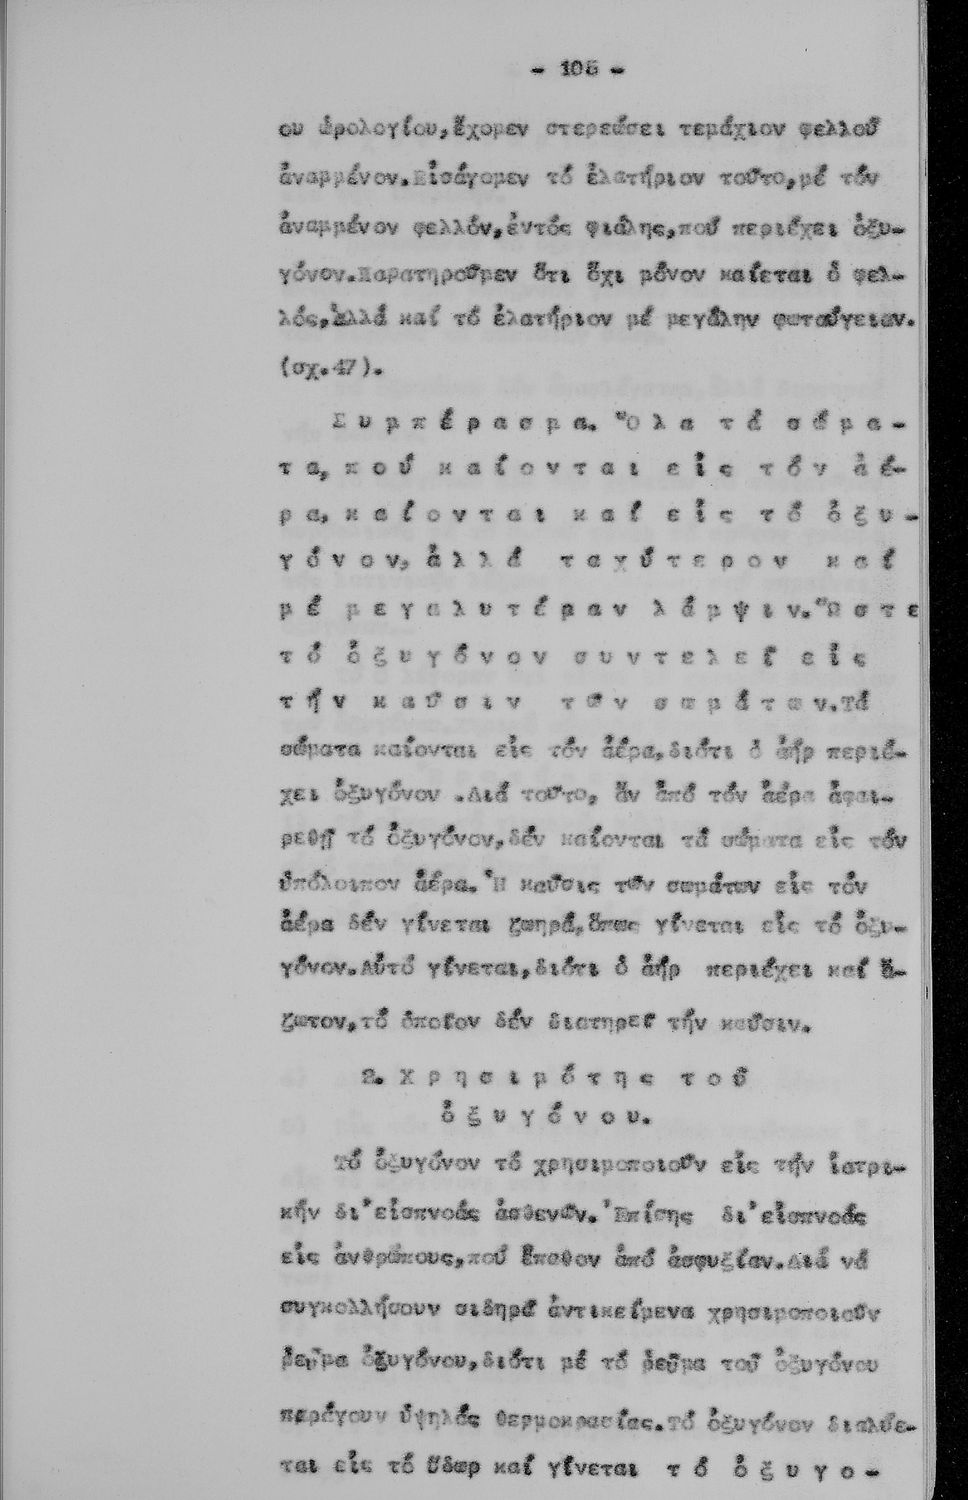 - 105 -
ου ὡρολογίου,ἔχομεν στερεώσει τεμάχιον φελλοῦ
ἀναμμένον.Εἰσάγομεν τό ἐλατήριον τοῦτο,μέ τόν
ἀναμμένον φελλόν,ἐντός φιάλης,πού περιέχει ὀξυ-
γόνον.Παρατηροῦμεν ὅτι ὄχι μόνον καίεται ὁ φελ-
λός,ἀλλά καί τό ἐλατήριον μέ μεγάλην φωταύγειαν.
(σχ.47).
Σ υ μ π έ ρ α σ μ α. Ὅ λ α τ ά σ ώ μ α -
τ α, π ο ύ κ α ί ο ν τ α ι ε ἰ ς τ ό ν ἀ έ-
ρ α, κ α ί ο ν τ α ι κ α ί ε ἰ ς τ ό ὀ ξ υ -
γ ό ν ο ν, ἀ λ λ ά τ α χ ύ τ ε ρ ο ν κ α ί
μ έ μ ε γ α λ υ τ έ ρ α ν λ ά μ ψ ι ν. Ὥ σ τ ε
τ ό ὀ ξ υ γ ό ν ο ν σ υ ν τ ε λ ε ῖ ε ἰ ς
τ ή ν κ α ῦ σ ι ν τ ῶ ν σ ω μ ά τ ω ν.Τά
σώματα καίονται εἰς τόν ἀέρα,διότι ὁ ἀήρ περιέ-
χει ὀξυγόνον .Διά τοῦτο, ἄν ἀπό τόν ἀέρα ἀφαι-
ρεθῇ τό ὀξυγόνον,δέν καίονται τά σώματα εἰς τόν
ὑπόλοιπον ἀέρα. Ἡ καῦσις τῶν σωμάτων εἰς τόν
ἀέρα δέν γίνεται ζωηρά,ὅπως γίνεται εἰς τό ὀξυ-
γόνον.Αὐτό γίνεται,διότι ὁ ἀήρ περιέχει καί ἄ-
ζωτον,τό ὁποῖον δέν διατηρεῖ τήν καῦσιν.
2. Χ ρ η σ ι μ ό τ η ς τ ο ῦ
ὀ ξ υ γ ό ν ο υ.
Τό ὀξυγόνον τό χρησιμοποιοῦν εἰς τήν ἰατρι-
κήν δι'εἰσπνοάς ἀσθενῶν. Ἐπίσης δι'εἰσπνοάς
εἰς ἀνθρώπους,πού ἔπαθον ἀπό ἀσφυξίαν.Διά νά
συγκολλήσουν σιδηρᾶ ἀντικείμενα χρησιμοποιοῦν
ρεῦμα ὀξυγόνου,διότι μέ τό ρεῦμα τοῦ ὀξυγόνου
παράγουν ὑψηλάς θερμοκρασίας.Τό ὀξυγόνον διαλύε-
ται εἰς τό ὕδωρ καί γίνεται τ ό ὀ ξ υ γ ο -